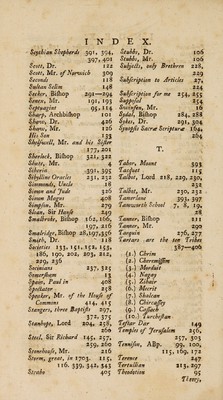 INDEX.
Scythian Shepherds 391, 394,
397, 401
Scott, Dr. 122
Scott, Mr. of Norwich 309
Seconds 118
Sultan Selim 148
Secker, Bishop 291—294
Senex, Mr. 191, 193
Septuagint 95, 114
Sharp, Archbishop 101
Shaw, Dr. 426
Shaw, Mr. 126
His Son 133
Shelswell, Mr. and his Sister
177, 201
Sherlock, Bishop 321, 322
Shute, Mr.
Siberia 391, 395
Sibylline Oracles 231, 232
Simmonds, Uncle 18
Simon and Jude 206
Simon Magus 408
Simpson, Mr. 279
Sloan, Sir Hans 249
Smalbroke, Bishop 162, 160,
197, 216
Smalridge, Bishop 28, 197, 595
Smith, Dr. 118
Societies 133, 151, 152, 153,
186, 190, 202, 203, 212,
229, 236
Socinians 237, 325
Somersham
Spain, Paul in 408
Spectator 258
Speaker, Mr. of the House of
Commons 414, 415
Stangers, three Baptists 297,
372, 375
Stanhope, Lord 204, 258,
260
Steel, Sir Richard 145, 257,
259, 260
Stonehouse, Mr. 216
Storm, great, in 1703. 115,
116, 339, 342, 343
Strabo 405
Stubbs, Dr. 106
Stubbs, Mr. 106
Subjects, only Brethren 228,
229
Subscription to Articles 27,
224
Subscription for me 254, 255
Suppofed 254
Swinfen, Mr. 16
Sydal, Bishop 284, 288
Sykes, Dr. 291, 304
Synopsis Sacræ Scripturæ 164,
284
T.
Tabor, Mount 393
Tacquet 115
Talbot, Lord 218, 229, 230,
258
Talbot, Mr. 230, 232
Tamerlane 393, 397
Tamworth School 7, 8, 19,
28
Tanner, Bishop 211
Tanner, Mr. 290
Tarquin 276, 277
Tartars are the ten Tribes
387—406
(1.) Crim
(2.) Cheremissim
(3.) Morduit
(4.) Nagay
(5.) Zibair
(6.) Mecrit
(7.) Shalcan
(8.) Chircassy
(9.) Cassack
(10.) Turcheftan
Teflar Dár 149
Temples of Jerusalem 256,
257, 305
Tennison, ABp. 99, 100,
115, 169, 172
Terence 247
Tertullian 213, 297
Theodotion 95
Theory,